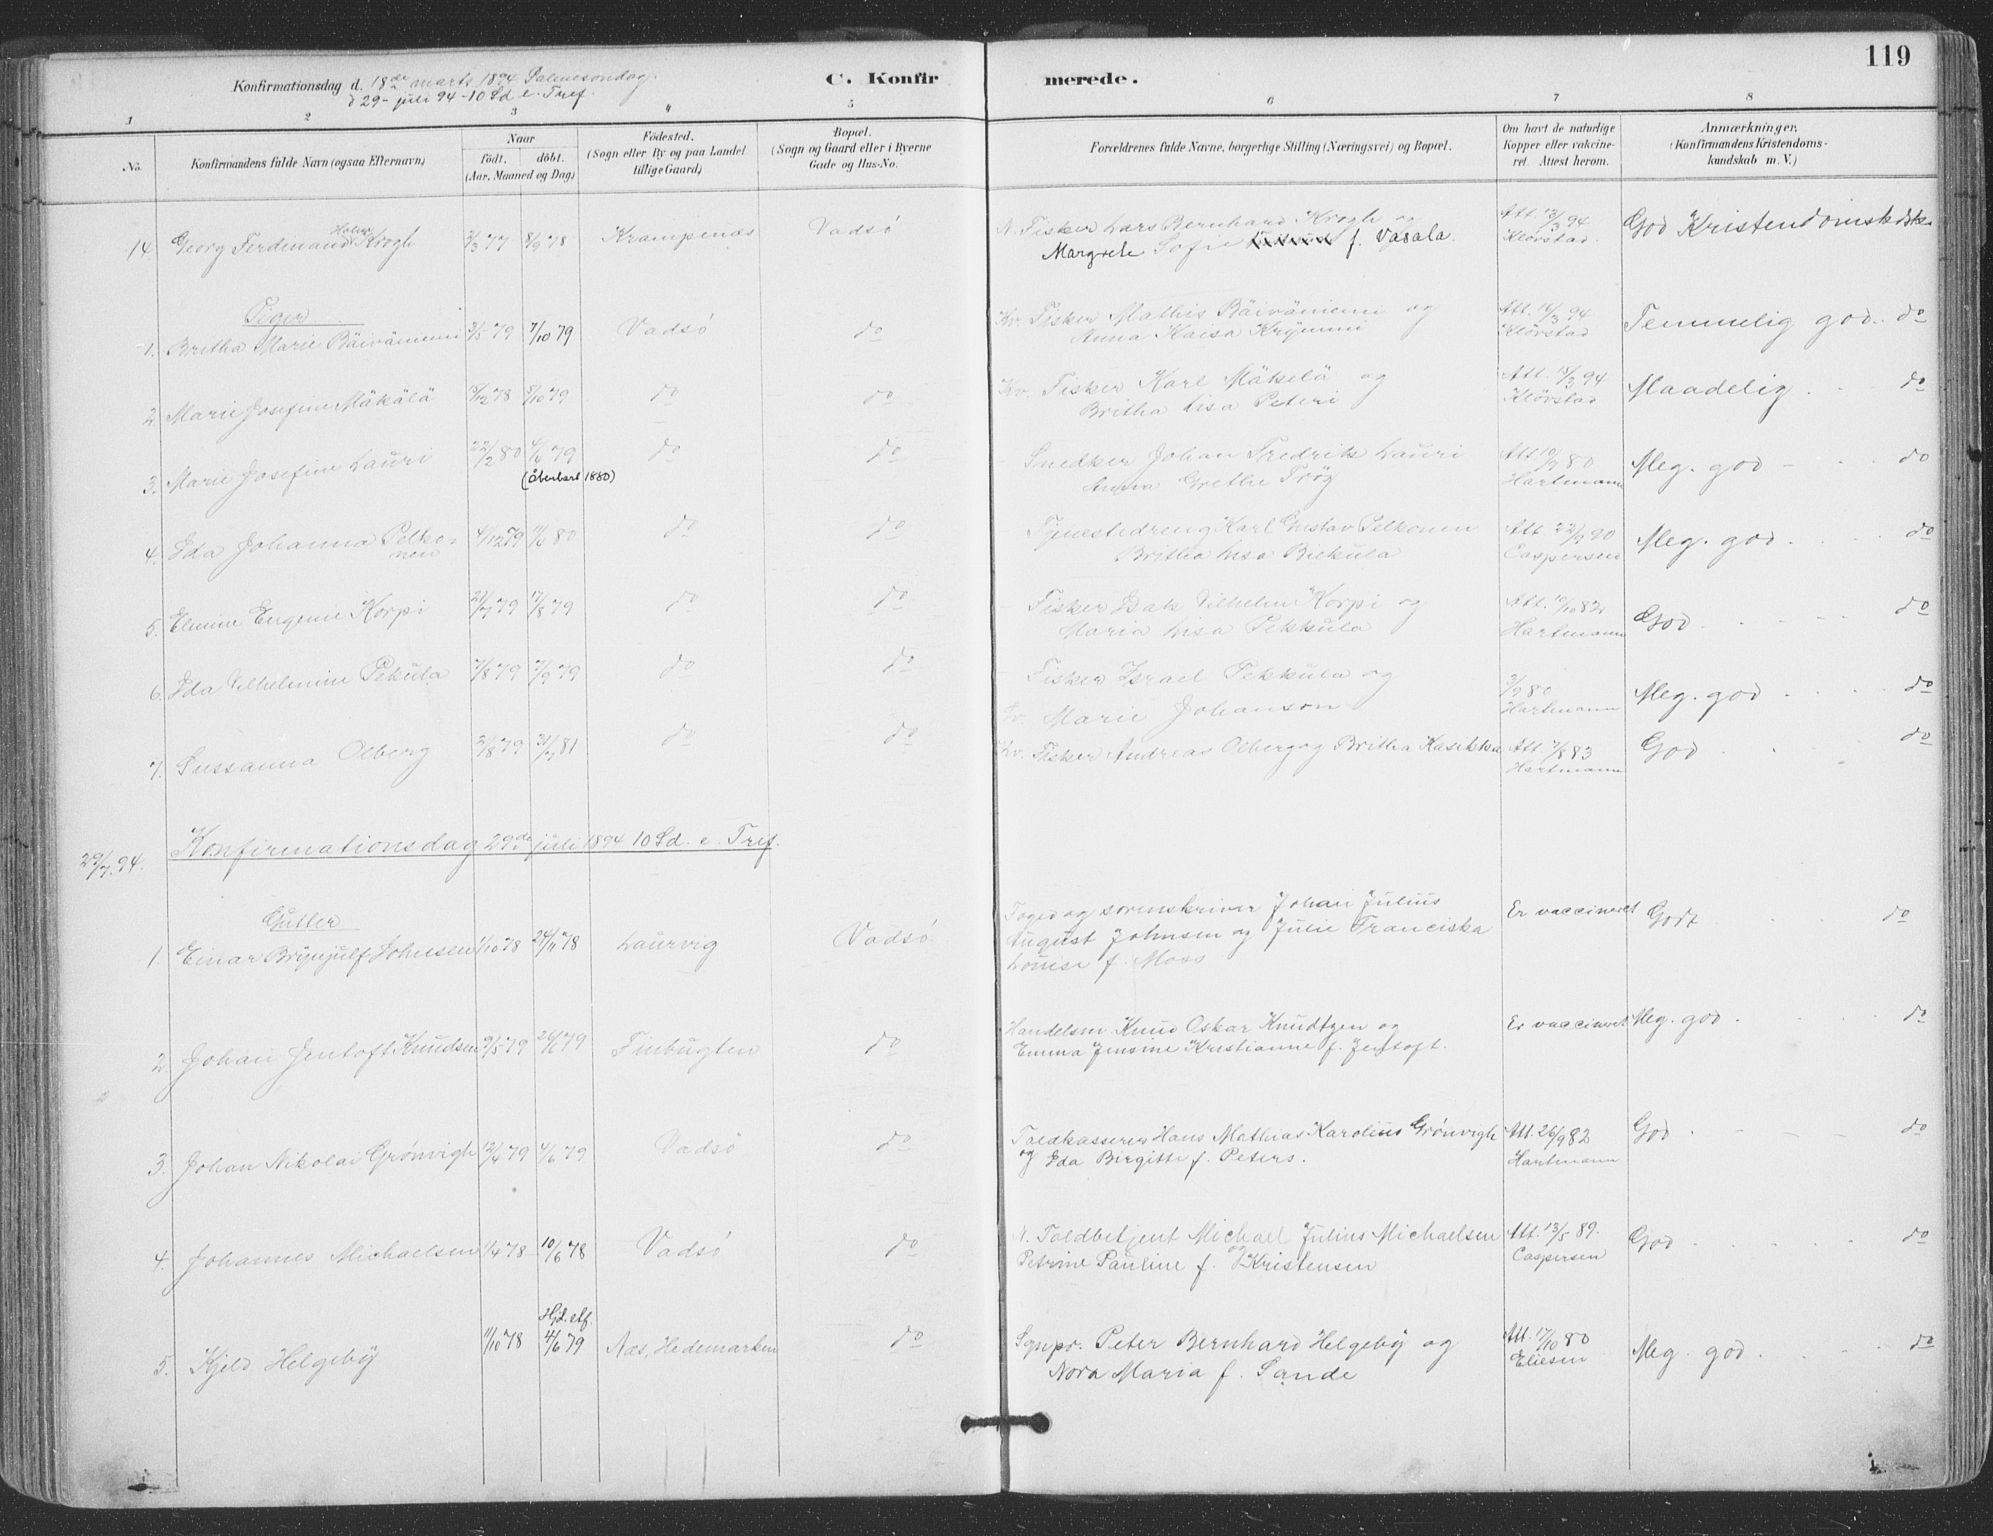 119
Konfirmationsdag d. 18de marts 1894 Palmesöndag.
d 29– juli 94 – 10 Sd. e. Tref.
C. Konfirmerede.
1 2 3 4 5 6 7 8
No.
Konfirmandens fulde Navn (ogsaa Efternavn)
Naar
födt. döbt.
(Aar, Maaned og Dag)
Födested.
(Sogn eller By og paa Landet
tillige Gaard)
Bopæl.
(Sogn og Gaard eller i Byerne
Gade og Hus-No.
Forældrenes fulde Navne, borgerlige Stilling (Næringsvei) og Bopæl.
Om havt de naturlige
Kopper eller vakcine-
ret. Attest herom.
Anmærkninger.
(Konfirmandens Kristendoms-
kundskab m. V.)
14 Georg Ferdinand Holm Krogh 3/3 77 8/9 78 Krampenæs Vadsö N. Fisker Lars Bernhard Krogh og Att. 13/3 94 God Kristendomskdsk.
Margrete Sofie f. Vasala. Klövstad.
Piger
1. Britha Marie Bäivämiemi 3/5 79 7/10 79 Vadsö do Kv. Fisker Mathis Bäivämiemi og Att. 14/3 94 Temmelig god. do
Anna Kaisa Krymmi Klövstad
2. Marie Josefine Mäkälä 18/12 78 5/10 79 do do Kv. Fisker Karl Mäkelä og Att. 15/3 94 Maadelig do
Britha Lisa Peteri Klövstad
3. Marie Josefine Lauri 22/2 80 4/6 79 do do Snedker Johan Fredrik Lauri Att 10/9 80 Meg. god do
(åbenbart 1880) Anna Grethe Tröy Hartmann
4. Ida Johanna Pelko- 4/12 79 11/6 80 do do Tjenestedreng Karl Gustav Pelkonen Att. 22/9 90 Meg. god. do
nen Britha Lisa Biekula Caspersen
5. Elmine Eugenie Korpi 21/7 79 17/8 79 do do Fisker Isak Vilhelm Korpi og Att. 10/10 82 God do
Maria Lisa Pekkula Hartmann
6. Ida Vilhelmine Pekula 7/8 79 7/9 79 do do Fisker Israel Pekkula og 3/9 80 Meg. god do
Kv. Marie Johanson Hartmann
7. Sussanna Olberg 2/8 79 31/7 81 do do Kv. Fisker Andreas Olberg og Britha Kasikka Att. 7/8 83 God do
Hartmann
29/7 94. Konfirmationsdag 29de juli 1894 10 Sd. e. Tref.
Gutter
1. Einar Brynjulf Johnsen 1/10 78 24/11 78 Laurvig Vadsö Foged og sorenskriver Johan Julius Er vaccineret Godt do
August Johnsen og Julie Franciska
Louise f. Moss
2. Johan Jentoft Knudsen 9/5 79 26/6 79 Finbugten do Handelsm. Knud Oskar Knudtzen og Er vaccineret Meg. god do
Emma Jensine Kristianne f. Jentoft.
3. Johan Nikolai Grönvigh 12/4 79 4/6 79 Vadsö do Toldkasserer Hans Mathias Karolius Grönvigh Att. 26/9 82 God do
og Ida Birgitte f. Peters. Hartmann
4. Johannes Michaelsen 1/4 78 10/6 78 Vadsö do N. Toldbetjent Michael Julius Michaelsen Att. 13/5 89. God do
og Petrine Pauline f. Kristensen Caspersen
Hjd. etf.
5. Kjeld Helgeby 11/10 78 4/6 79 Næs, Hedemarken do Sgnpr. Peter Bernhard Helgeby og Att. 17/10 80 Meg. god. do
Nora Maria f. Sande Eliesen